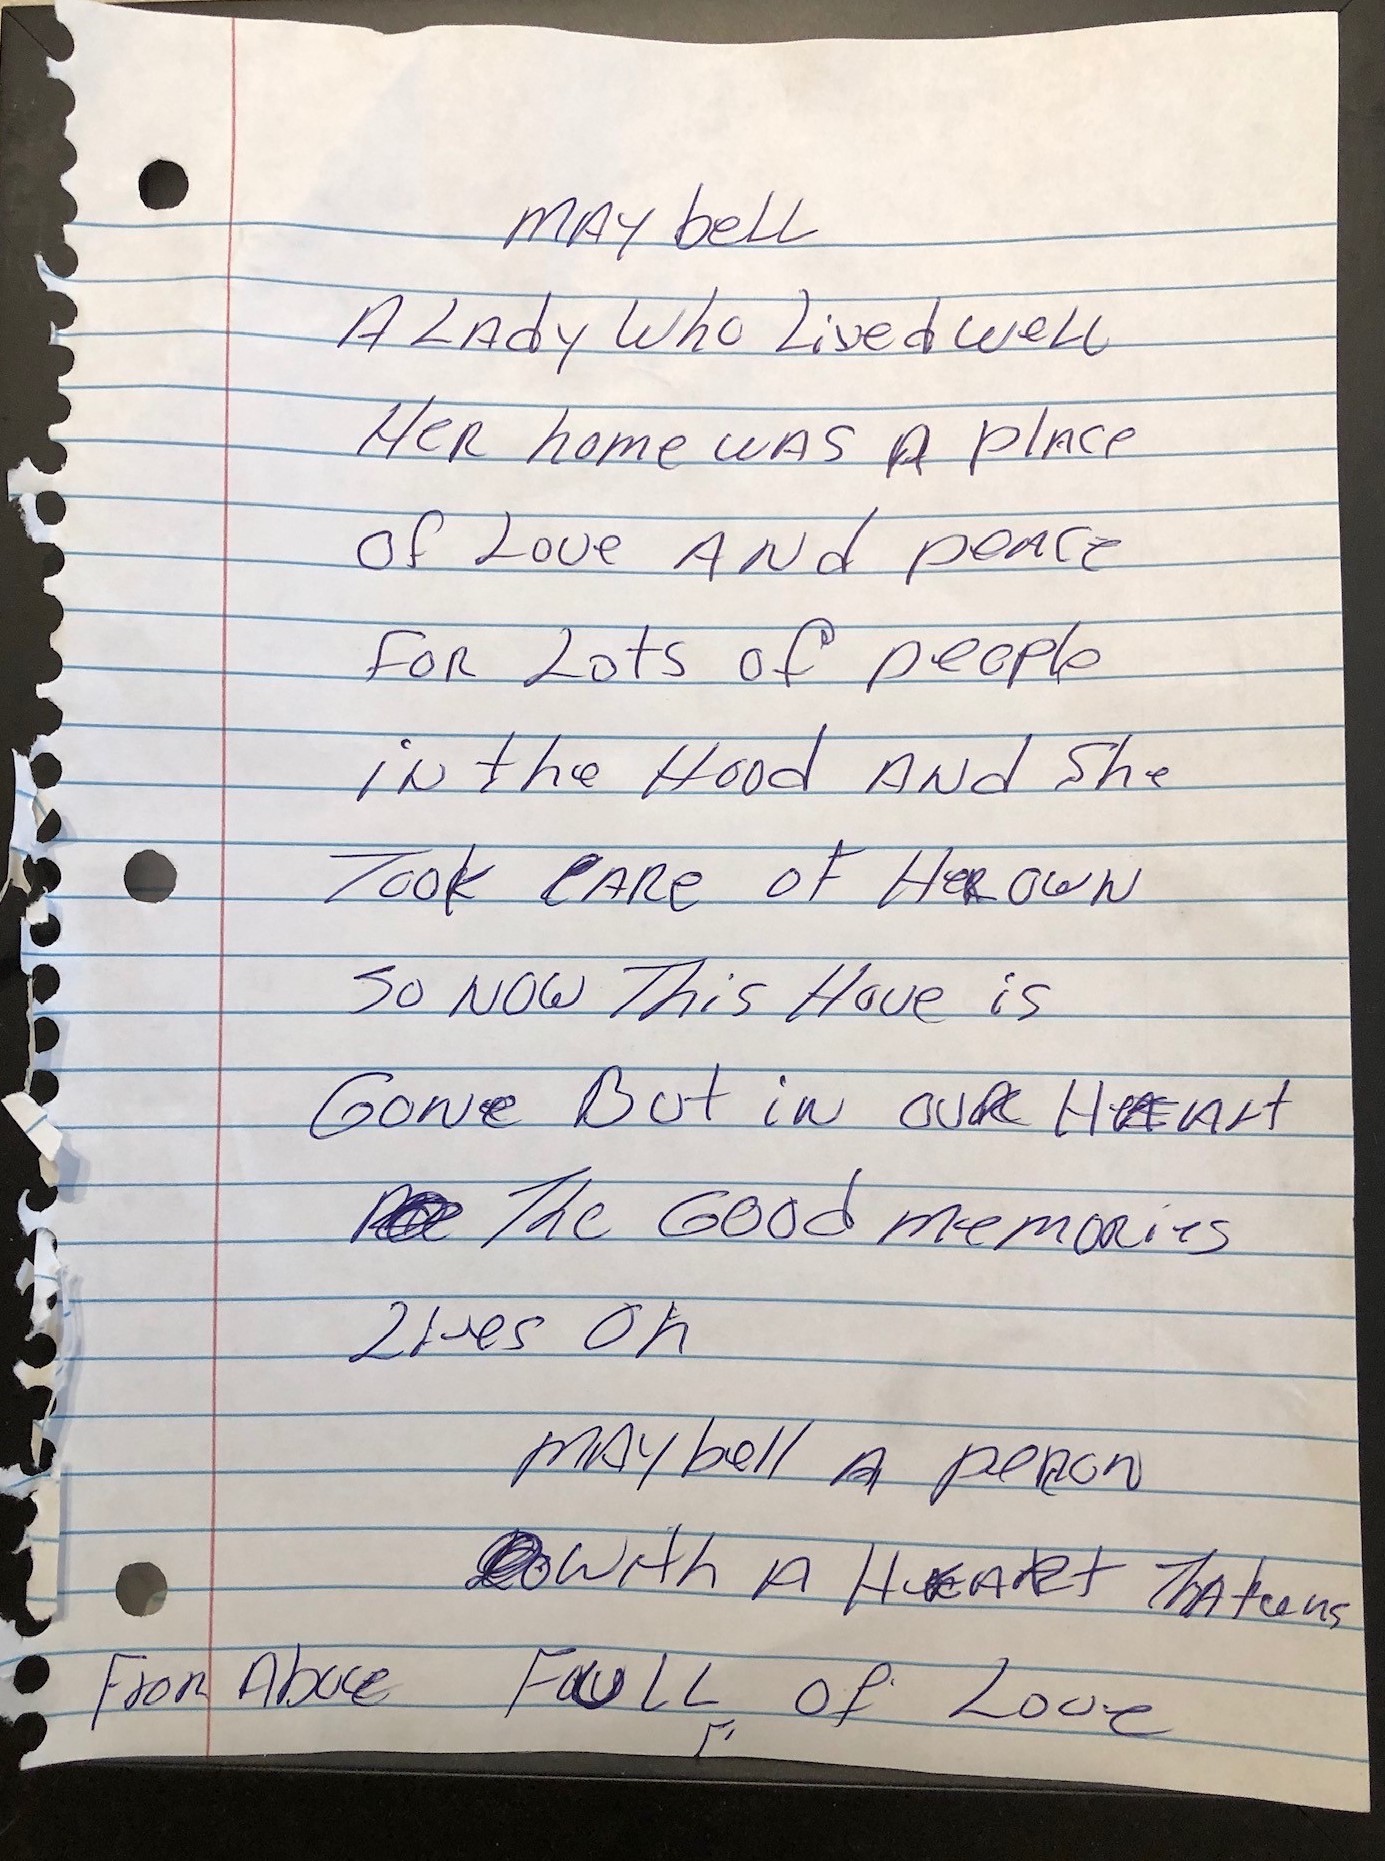 MAY bell
A LAdy Who Lived well
HeR home wAS A plAce
of Love ANd peAce
FOR Lots of people
iN the Hood ANd She
Took CARe of HeR owN
SO NOW This Hove is
GoNe But iN OUR HeARt
The Good memoRies
Lives On
MAY bell A peRon
With A HeARt ThAt
From Above FULL of Love